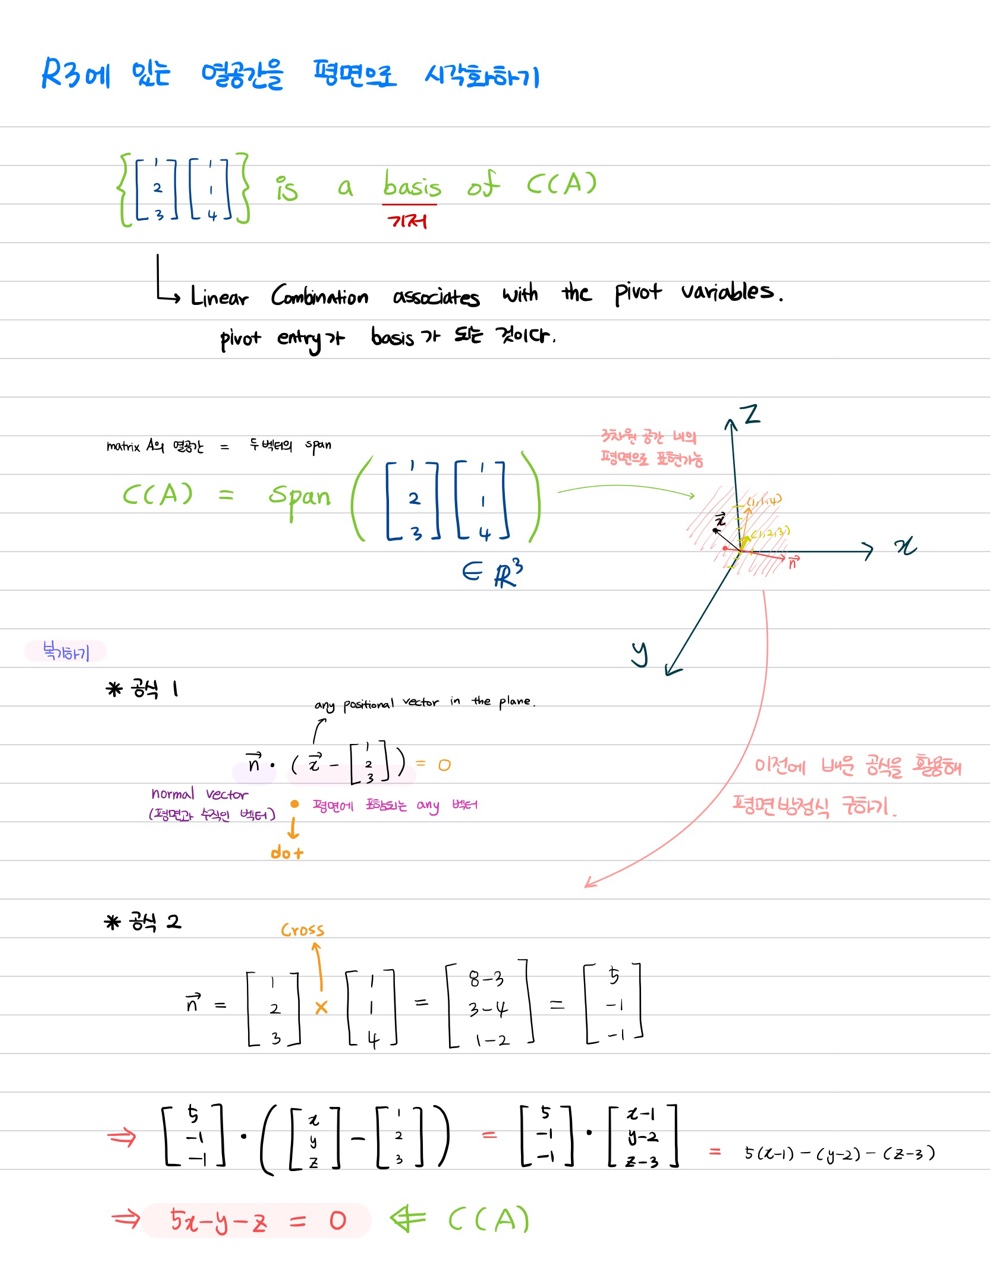 R3에 있는 열공간을 평면으로 시각화하기
{[1 2 3] [1 1 4]} is a basis of C(A)
기저
→ Linear Combination associates with the pivot variables.
pivot entry가 basis가 되는 것이다.
matrix A의 열공간 = 두 벡터의 span
C(A) = span ([1 2 3] [1 1 4])
∈ ℝ³
3차원 공간 내의
평면으로 표현가능
z
(1,1,4)
x⃗
(1,2,3)
n⃗
x
y
복기하기
* 공식 1
any positional vector in the plane.
n⃗ · (x⃗ - [1 2 3]) = 0
normal vector
(평면과 수직인 벡터)
평면에 포함되는 any 벡터
dot
이전에 배운 공식을 활용해
평면방정식 구하기.
* 공식 2
Cross
n⃗ = [1 2 3] × [1 1 4] = [8-3 3-4 1-2] = [5 -1 -1]
⇒ [5 -1 -1] · ([x y z] - [1 2 3]) = [5 -1 -1] · [x-1 y-2 z-3] = 5(x-1) - (y-2) - (z-3)
⇒ 5x-y-z = 0 ⇐ C(A)